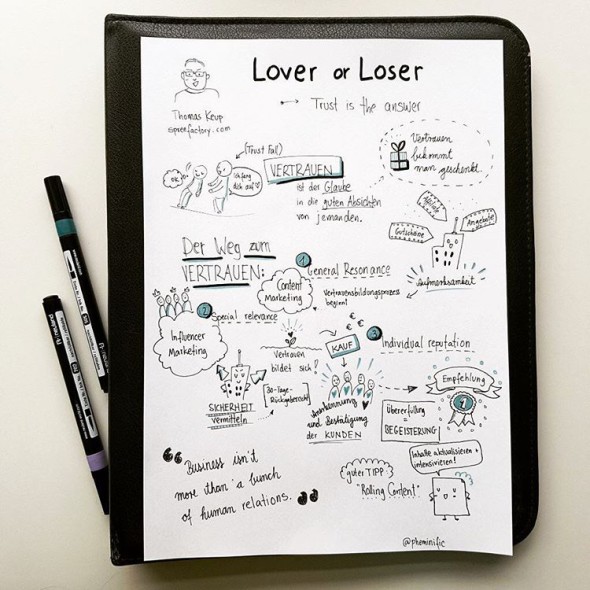 Lover or Loser
Trust is the answer
Thomas Keup
(Trust Fall)
ok, go!
Ich fang
dich auf!
VERTRAUEN
ist der Glaube
in die guten Absichten
von jemanden.
Vertrauen
bekommt
man geschenkt.
Gutscheine
Angebote
Aufmerksamkeit
Der Weg zum
VERTRAUEN:
1 General Resonance
Content
Marketing
Vertrauensbildungsprozess
beginnt
2 Special relevance
Influencer
Marketing
Vertrauen
bildet sich!
€ €
KAUF
3 Individual reputation
SICHERHEIT
vermitteln
30-Tage-
Rückgaberecht
Anerkennung
und Bestätigung
der KUNDEN
Empfehlung
1
Übererfüllung
BEGEISTERUNG
"Business isn't
more than a bunch
of human relations."
guter TIPP:
"Rolling Content"
Inhalte aktualisieren +
intensivieren!
@pheminific